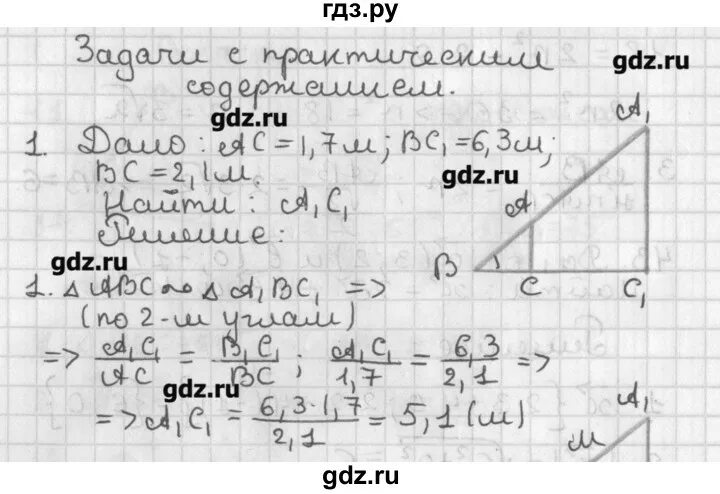 гдз.ру
Задачи с практическим
содержанием.
gdz.ru
gdz.ru
1. Дано: AC = 1,7 м; BC₁ = 6,3 м;
BC = 2,1 м.
gdz.ru
Найти: A₁C₁
Решение:
A₁
A
B
C
C₁
gdz.ru
1. △ ABC ∾ △ A₁BC₁ =>
(по 2-м углам)
=> A₁C₁/AC = B₁C₁/BC; A₁C₁/1,7 = 6,3/2,1 =>
gdz.ru
=> A₁C₁ = 6,3·1,7/2,1 = 5,1 (м)
A₁
M
gdz.ru